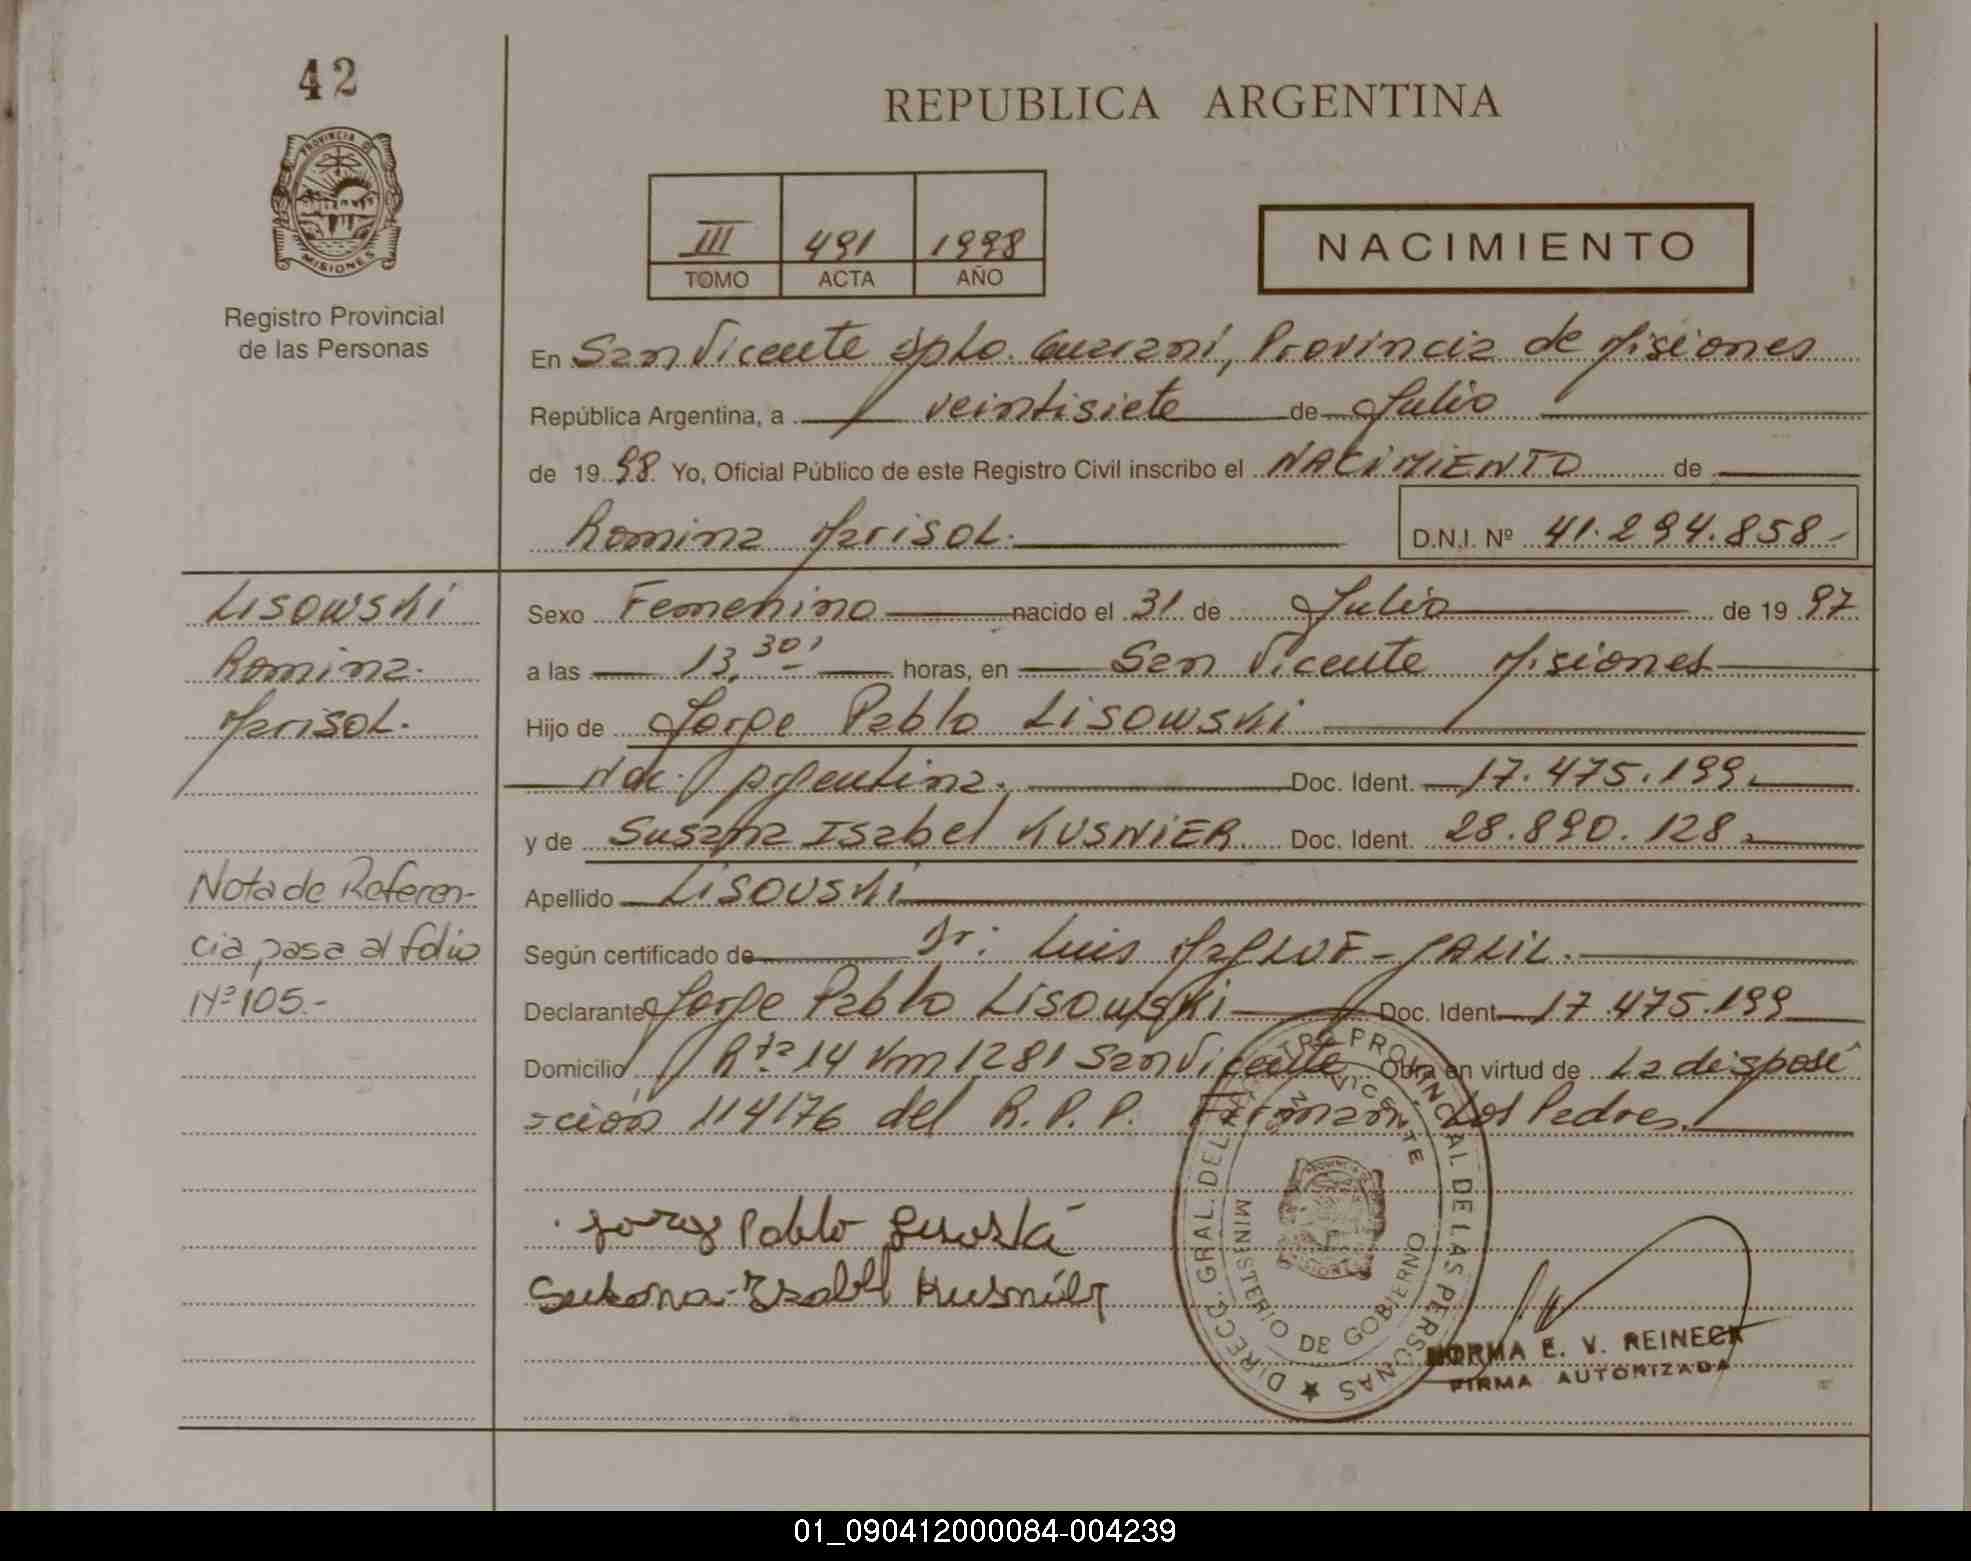 42
PROVINCIA D
MISIONES
Registro Provincial
de las Personas
REPUBLICA ARGENTINA
III 491 1998
TOMO ACTA AÑO
NACIMIENTO
En San Vicente Dpto. Guaraní, Provincia de Misiones
República Argentina, a veintisiete de Julio
de 19 98 Yo, Oficial Público de este Registro Civil inscribo el NACIMIENTO de
Romina Marisol. D.N.I. Nº 41.294.858-
Lisowski
Romina
Marisol.
Nota de Referen-
cia pasa al folio
Nº 105.-
Sexo Femenino nacido el 31 de Julio de 19 97
a las 13,30' horas, en San Vicente Misiones
Hijo de Jorge Pablo Lisowski
Nac. Argentina. Doc. Ident. 17.475.199.
y de Susana Isabel KUSNIER Doc. Ident. 28.890.128
Apellido Lisouski
Según certificado de Dr: Luis JALIL.
Declarante Jorge Pablo Lisowski Doc. Ident. 17.475.199
Domicilio Rta 14 Km 1281 San Vicente Obra en virtud de La disposi
=ción 114176 del R.P.P. Firman Los Padres.
Jorge Pablo
Susana Isabel Kusnier
DIRECC. GRAL. DEL REGISTRO PROVINCIAL DE LAS PERSONAS
SAN VICENTE
MINISTERIO DE GOBIERNO
NORMA E. V. REINECK
FIRMA AUTORIZADA
01_090412000084-004239